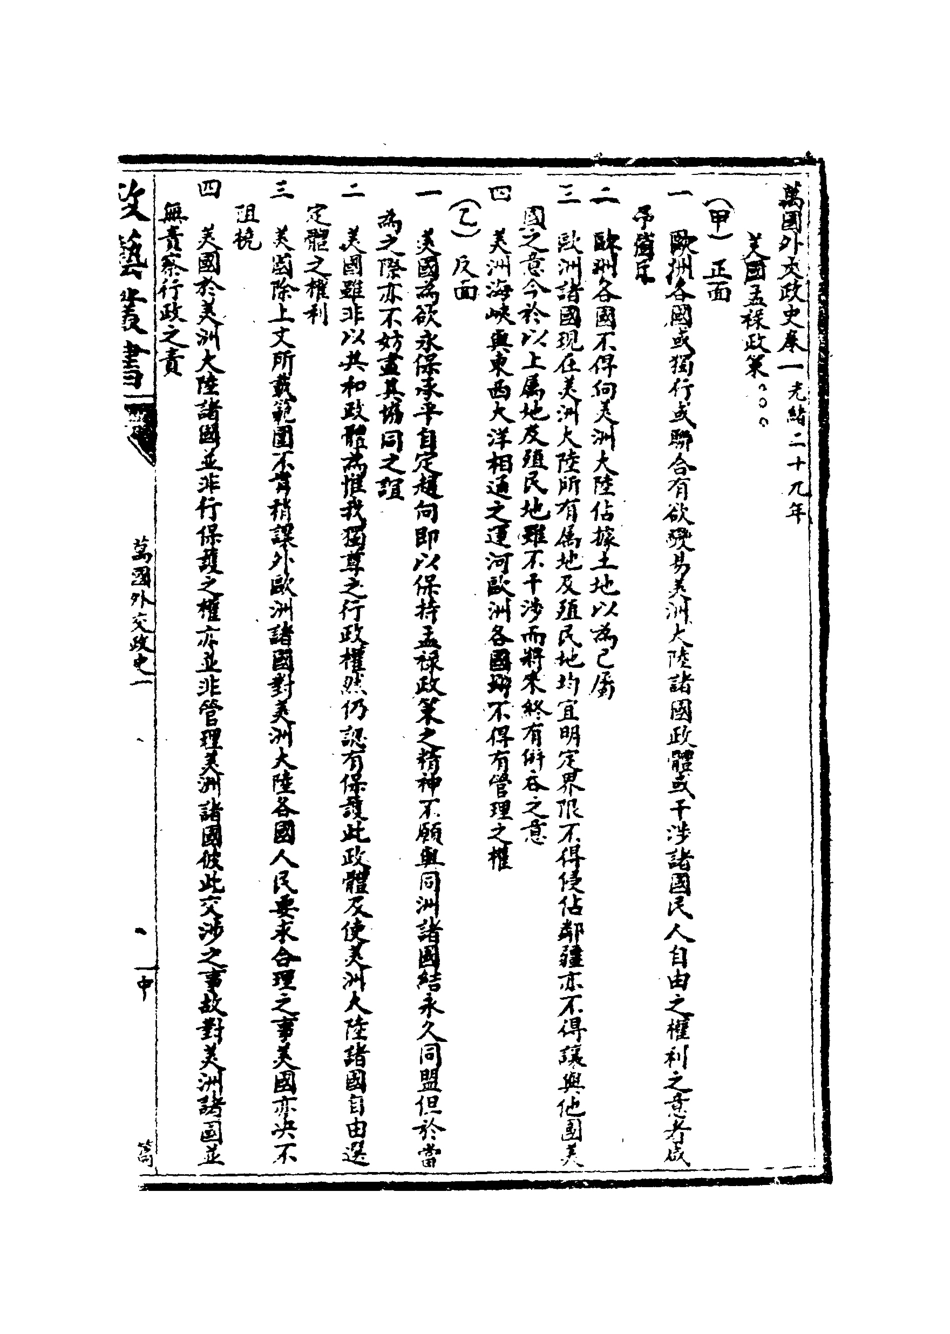 萬國外交政史卷一 光緒二十九年
美國孟祿政策。。。
(甲)正面
一 歐洲各國或獨行或聯合有欲變易美洲大陸諸國政體或干涉諸國民人自由之權利之意者咸
予
二 歐洲各國不得向美洲大陸佔據土地以為己屬
三 歐洲諸國現在美洲大陸所有屬地及殖民地均宜明定界限不得侵佔鄰疆亦不得讓與他國美
國之意今於以上屬地及殖民地雖不干涉而將來終有併吞之意
四 美洲海峽與東西大洋相通之運河歐洲各國均不得有管理之權
(乙)反面
一 美國為欲永保承平自定趨向即以保持孟祿政策之精神不願與同洲諸國結永久同盟但於當
為之際亦不妨盡其協同之誼
二 美國雖非以共和政體為惟我獨尊之行政權然仍認有保護此政體及使美洲大陸諸國自由選
定體之權利
三 美國除上文所載範圍不肯稍誤外歐洲諸國對美洲大陸各國人民要求合理之事美國亦決不
阻撓
四 美國於美洲大陸諸國並非行保護之權亦並非管理美洲諸國彼此交涉之事故對美洲諸國並
無責察行政之責
政藝叢書
萬國外交政史一
一中